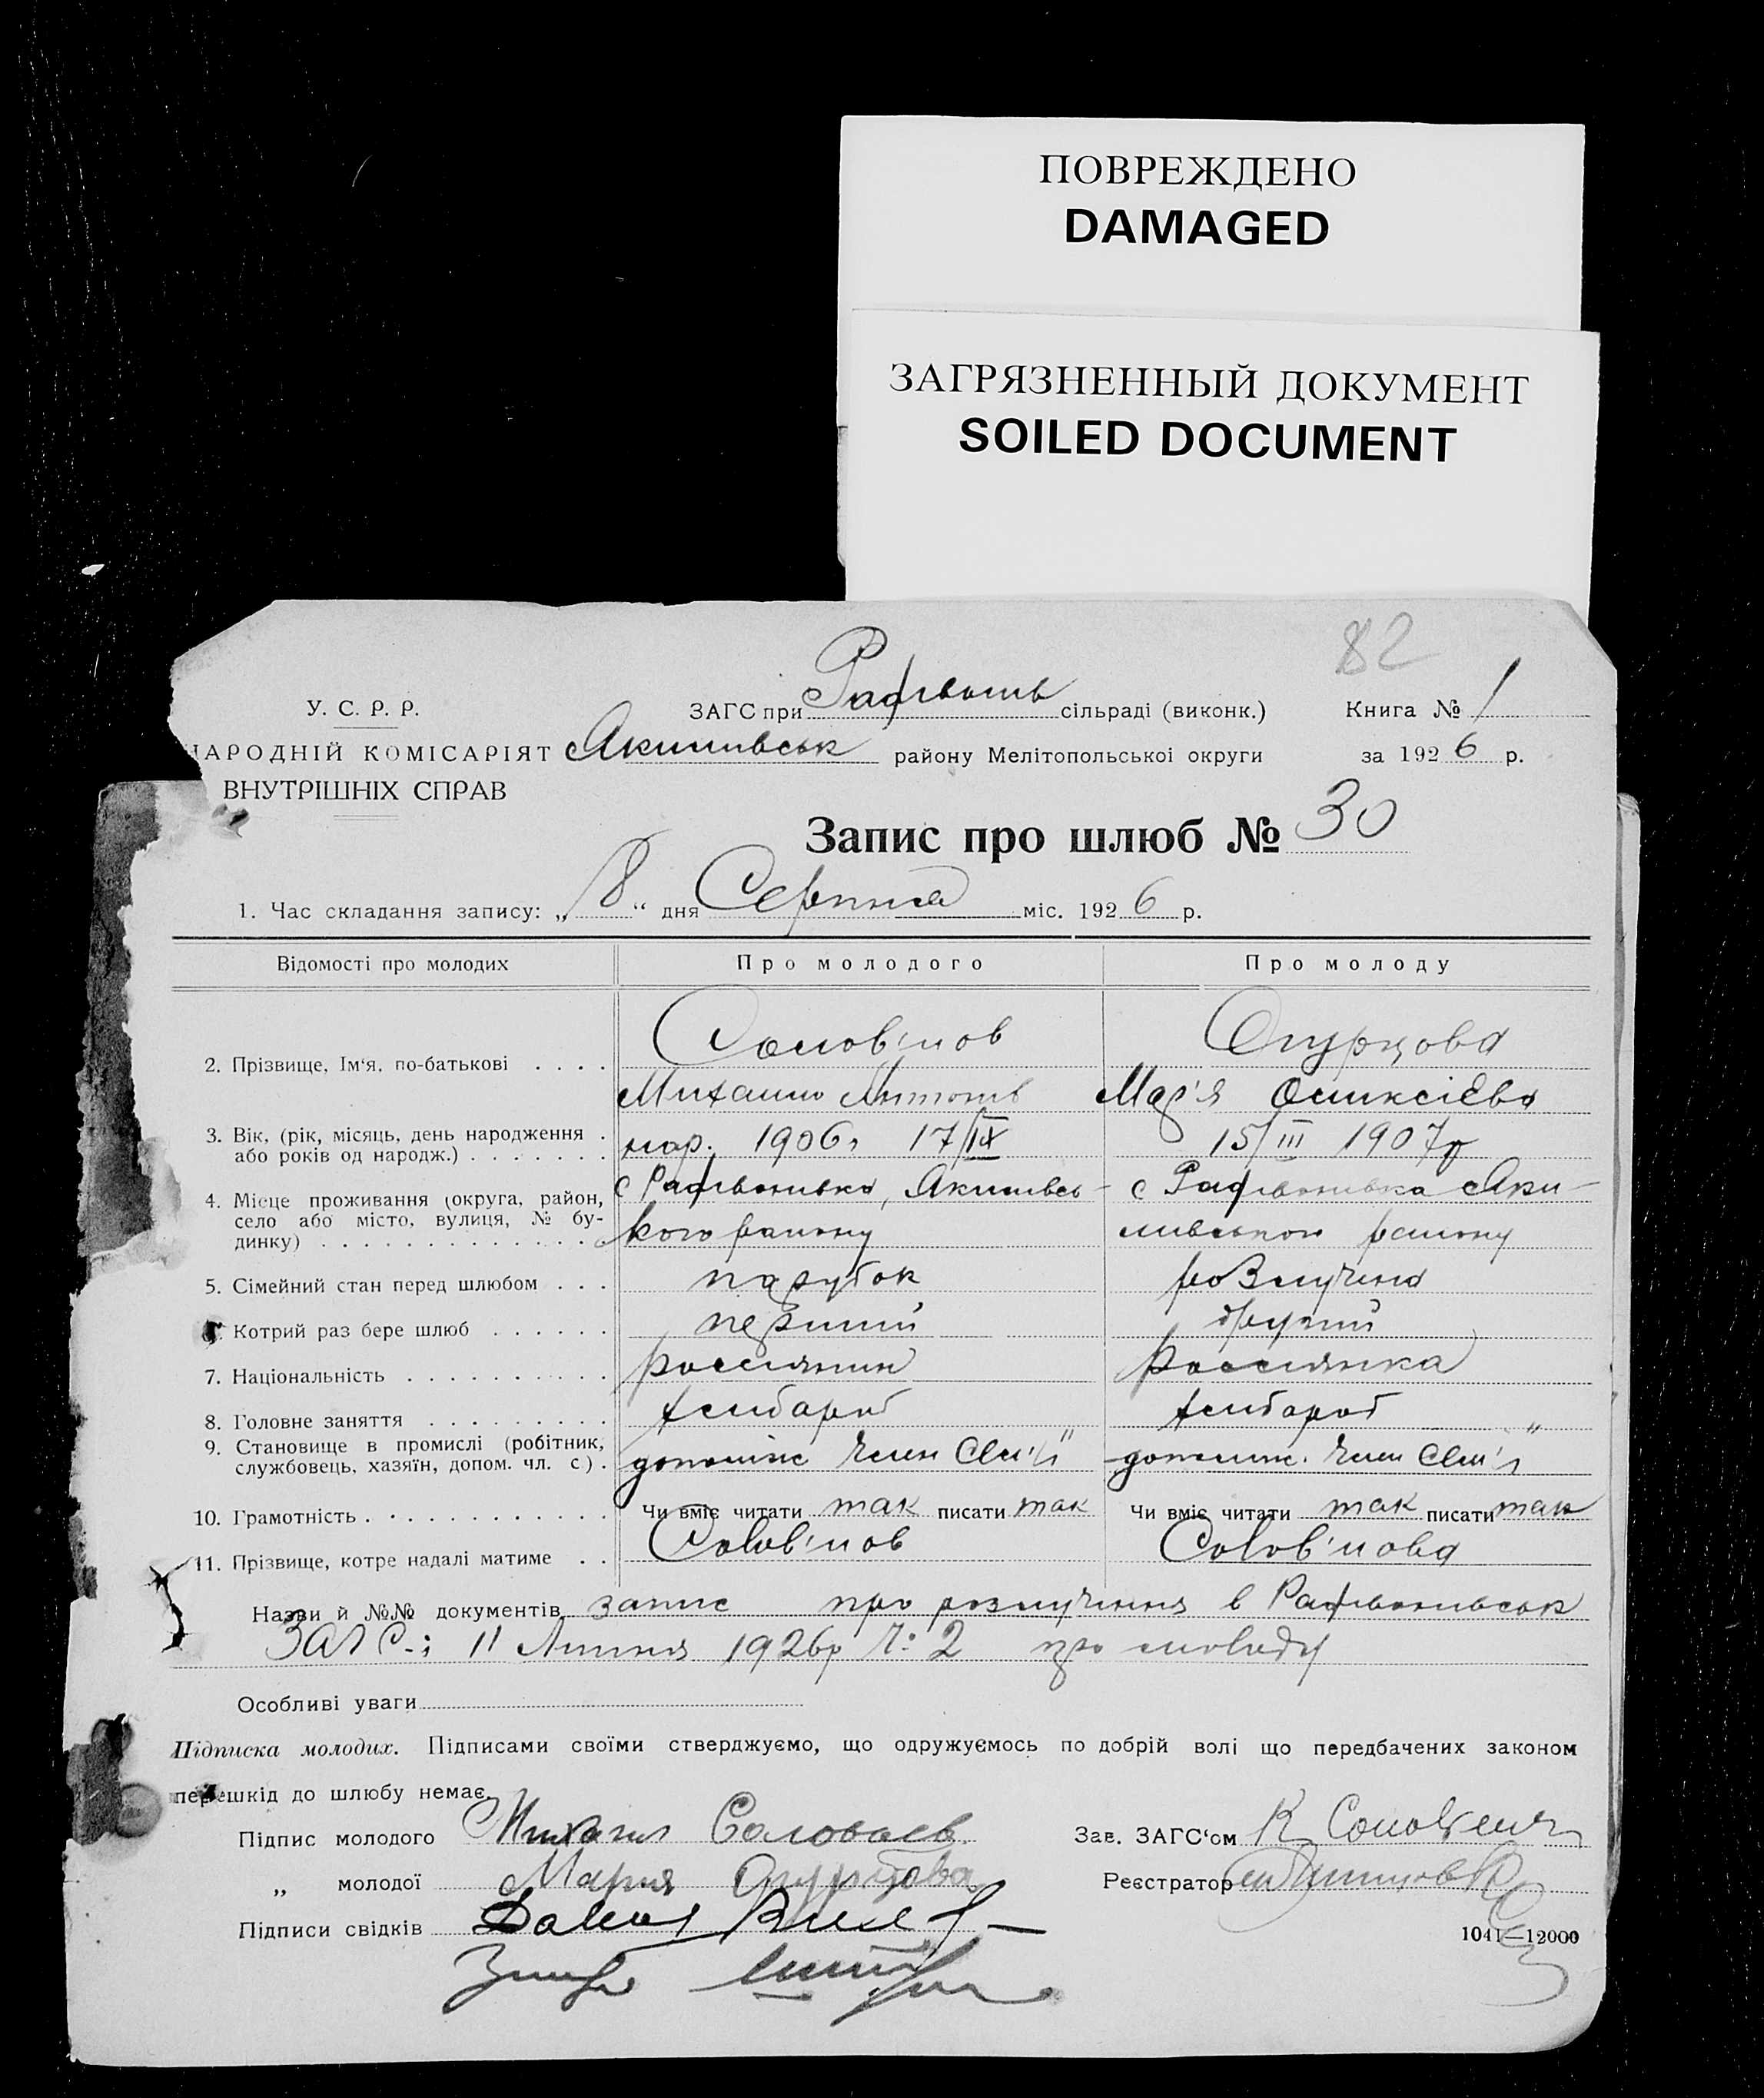 ПОВРЕЖДЕНО
DAMAGED
ЗАГРЯЗНЕННЫЙ ДОКУМЕНТ
SOILED DOCUMENT
82
У. С. Р. Р.
ЗАГС при сільраді (виконк.) Книга № 1
АРОДНІЙ КОМІСАРІЯТ Якимівськ району Мелітопольської округи за 1926 р.
ВНУТРІШНІХ СПРАВ
Запис про шлюб № 30
1. Час складання запису: „ 8 “ дня Серпня міс. 1926 р.
Відомості про молодих Про молодого Про молоду
2. Прізвище, Ім‘я, по-батькові . . . . Солов'йов Огурцова
Михайло Антонів Мар'я Оликсієва
3. Вік, (рік, місяць, день народження . або років од народж.) . . . . . . . нар. 1906, 17/IX 15/III 1907р
4. Місце проживання (округа, район, с Якимівсь- с Яки-
село або місто, вулиця, № бу-
динку) . . . . . . . . . . . . . кого району мивського району
5. Сімейний стан перед шлюбом . . . парубок розлучена
Котрий раз бере шлюб . . . . . . перший другий
7. Національність . . . . . . . . . . россиянин россиянка
8. Головне заняття . . . . . . . . . хлибароб хлибароб „
9. Становище в промислі (робітник,
службовець, хазяїн, допом. чл. с.) . допоміж член сем'ї допоміж. член сем'ї
10. Грамотність . . . . . . . . . . . Чи вміє читати так писати так Чи вміє читати так писати так
11. Прізвище, котре надалі матиме . . Солов'йов Солов'йова
Назви й №№ документів запис про розлучиння в
ЗАГС-і 11 Липня 1926р Ч: 2 про молоду
Особливі уваги
Підписка молодих. Підписами своїми стверджуємо, що одружуємось по добрій волі що передбачених законом
перешкід до шлюбу немає.
Підпис молодого Михаил Соловьев Зав. ЗАГС‘ом К
„ молодої Мария Огурцова Реєстратор
Підписи свідків
1041—12000